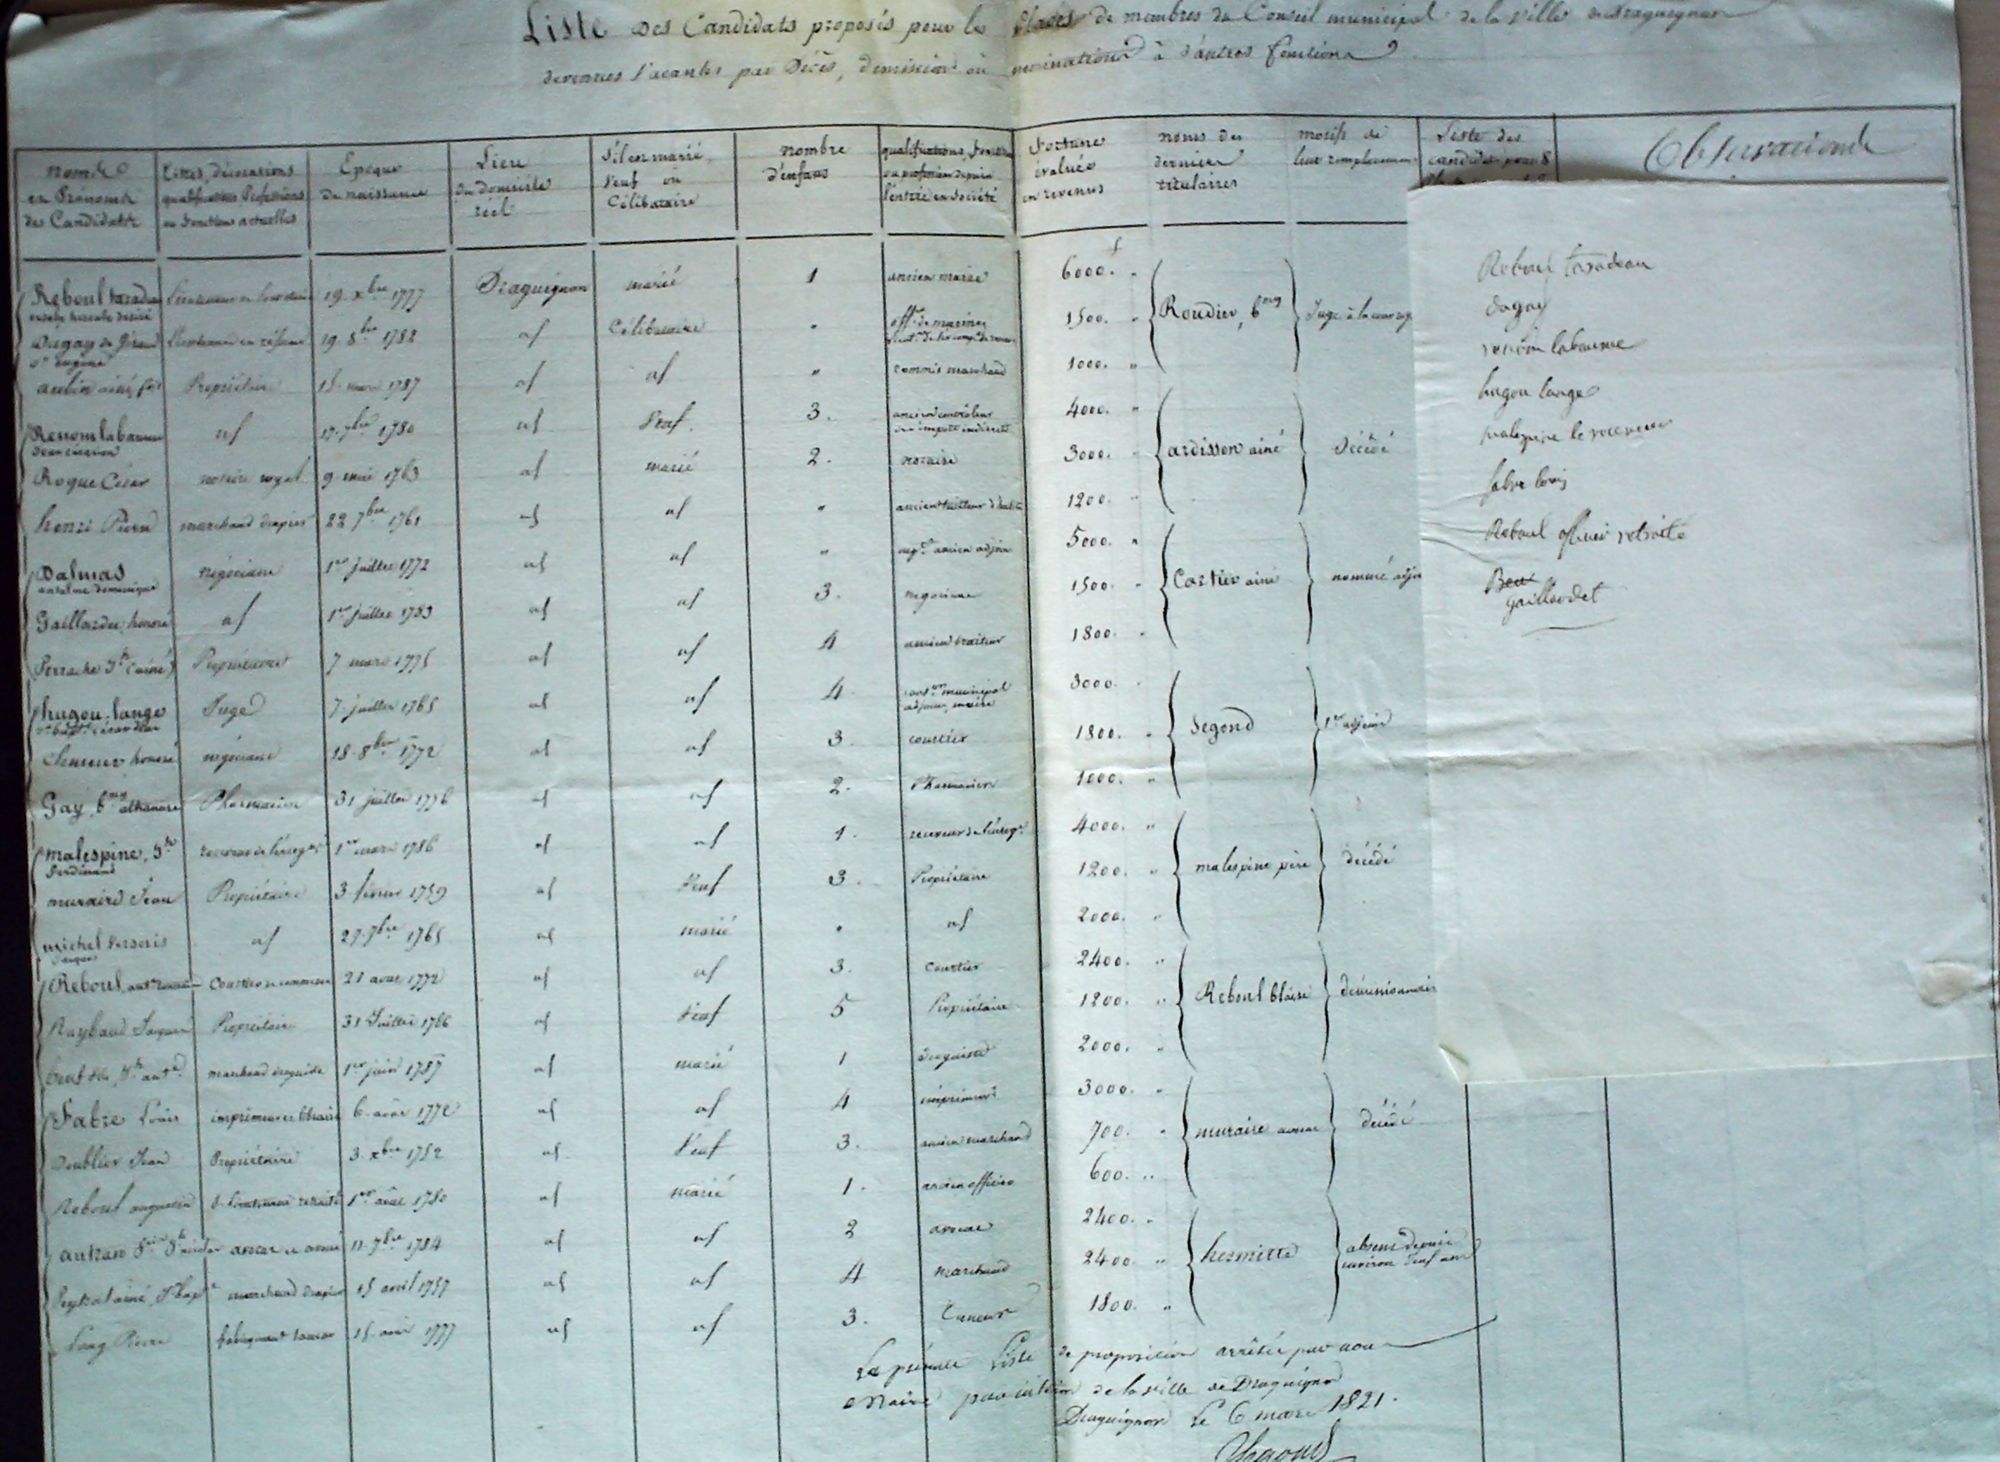 Liste des Candidats proposés pour les places de membres du Conseil municipal de la ville de Draguignan
devenues vacantes par Décès, démission ou nomination à d'autres fonctions
noms et Prénoms des Candidats
titres, décorations qualifications Professions ou fonctions actuelles
Epoque de naissance
Lieu du domicile réel
S'il est marié, veuf ou Célibataire
nombre d'enfans
qualifications, fonctions ou profession depuis l'entrée en société
fortune évaluée en revenus
noms des derniers titulaires
motifs de leur remplacement
Liste des candidats pour
Observations
Reboul taradeau 19 xbre 1777 Draguignan marié 1 ancien maire 6000
Dugay 19 8bre 1782 id Célibataire " off. de marine 1500
aubin ainé Propriétaire 15 mars 1787 id id " commis marchand 1000
Roudier Juge à la cour
Renom labaume id 17 7bre 1780 id Veuf 3 ancien contrôleur des impots indirects 4000
Roque César notaire royal 9 mai 1763 id marié 2 notaire 3000
henri Pierre marchand drapier 22 7bre 1761 id id " 1200
ardisson ainé Décédé
Dalmas antelme dominique négociant 1er juillet 1772 id id " ancien adjoint 5000
Gaillardet honoré id 1er juillet 1783 id id 3 négociant 1500
Perrache ainé Propriétaire 7 mars 1775 id id 4 1800
Cartier ainé nommé adjoint
hugou lange Juge 7 juillet 1765 id id 4 municipal adjoint, maire 3000
honoré négociant 18 8bre 1772 id id 3 courtier 1800
Gay, athanase Pharmacien 31 juillet 1776 id id 2 Pharmacien 1000
Segond 1er adjoint
malespine, Jh ferdinand receveur de l'enregt 1er mars 1786 id id 1 receveur de l'enregt 4000
muraire Jean Propriétaire 3 février 1759 id Veuf 3 Propriétaire 1200
michel id 27 7bre 1765 id marié " id 2000
malespine père décédé
Reboul Courtier de commerce 21 aout 1772 id id 3 Courtier 2400
Raybaud Jacques Propriétaire 31 Juillet 1766 id Veuf 5 Propriétaire 1200
marchand droguiste 1er juin 1787 id marié 1 droguiste 2000
Reboul blaise démissionnaire
Fabre Louis imprimeur et libraire 6 août 1772 id id 4 imprimeur 3000
Doublier Jean Propriétaire 3 xbre 1752 id Veuf 3 ancien marchand 700
Reboul augustin s. lieutenant retraité 1er aout 1780 id marié 1 ancien officier 600
muraire avocat décédé
autran avocat et avoué 11 7bre 1784 id id 2 avocat 2400
ainé marchand drapier 15 avril 1757 id id 4 marchand 2400
Long Pierre fabriquant tanneur 15 1777 id id 3 Tanneur 1800
hermitte absent depuis environ neuf ans
La présente Liste de proposition arrêtée par nous
Maire par interim de la ville de Draguignan
Draguignan le 6 mars 1821.
Reboul taradeau
dugay
renom labaume
hugou lange
malespine le receveur
fabre louis
Reboul officier retraité
gaillardet